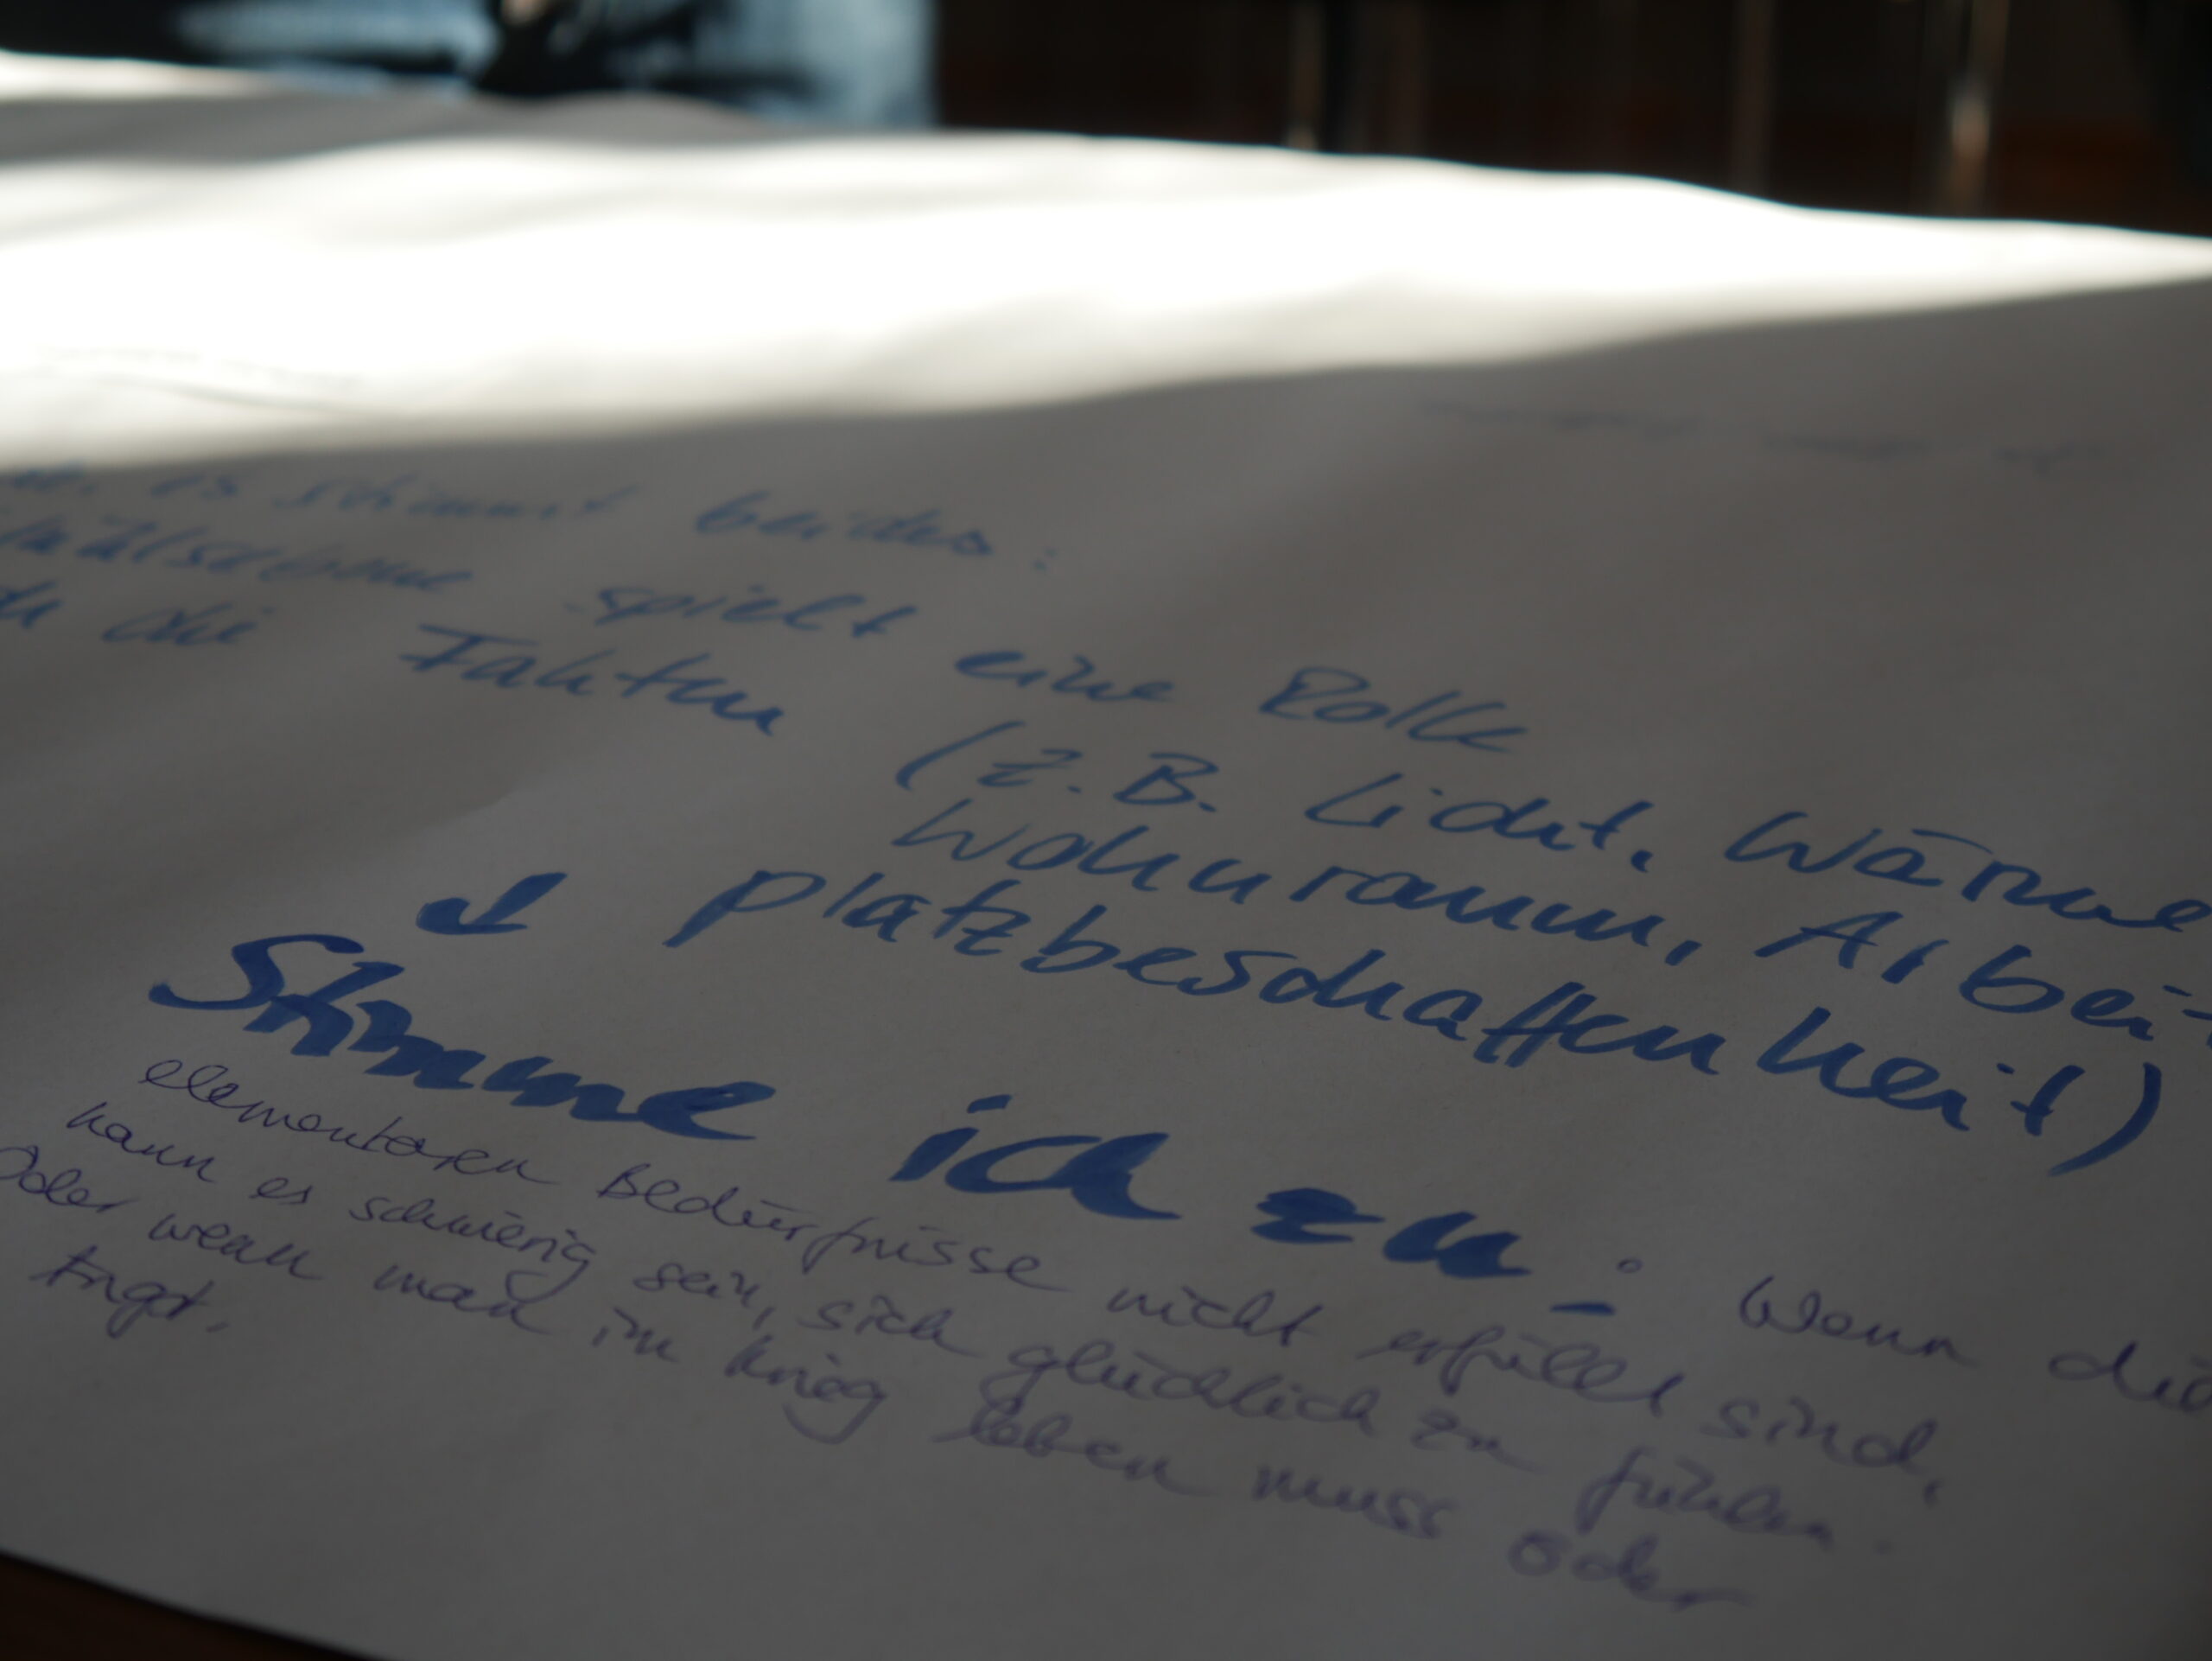 es stimmt beides:
spielt eine Rolle
die Fakten (z.B. Licht, Wärme
Wohnraum, Arbeits-
platzbeschaffenheit)
Stimme ich zu: Wenn die
elementaren Bedürfnisse nicht erfüllt sind,
kann es schwierig sein, sich glücklich zu fühlen.
Oder wenn man im Krieg leben muss oder
Angst.